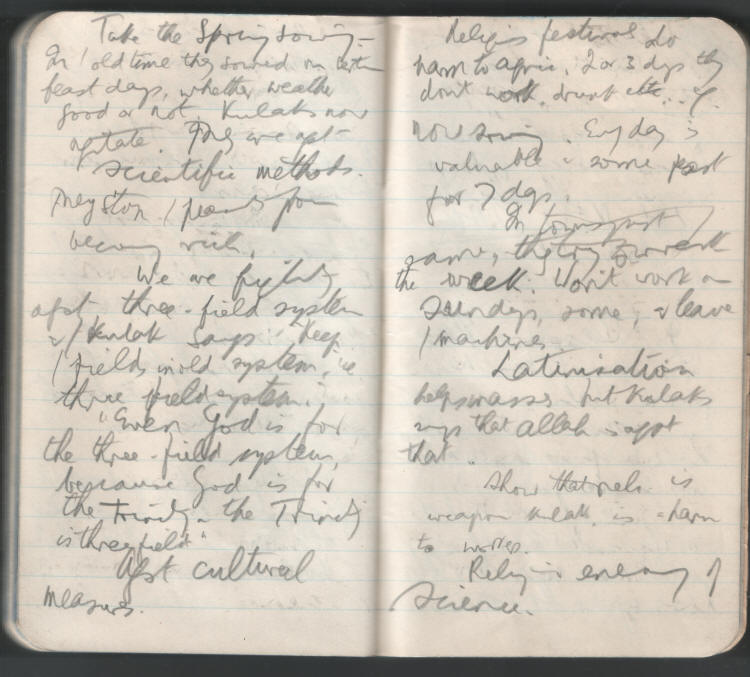 Take the Spring Sowing –
In / old time they sowed on certn
feast days, whether weather
good or not. Kulaks now
agitate. They are agst
scientific methods.
They stop / peasants from
becoming rich.
We are fighting
agst three-field system
& / Kulak says "Keep
/ fields in old system, i.e.
three field system."
"Even God is for
the three-field system,
because God is for
the Trinity & the Trinity
is three field"
Agst cultural
measures.
Religis festivals do
harm to agric. 2 or 3 days they
don't work, drunk etc.
now sowing. Every day is
valuable & some
for 7 days.
In transport
same, they try to wreck
the week. Won't work on
Sundays, some, & leave
/ machines.
Latinisation
helps masses but Kulaks
says that Allah is agst
that.
Show that relig. is
weapon Kulak. is harm
to worker.
Relig is enemy of
Science.